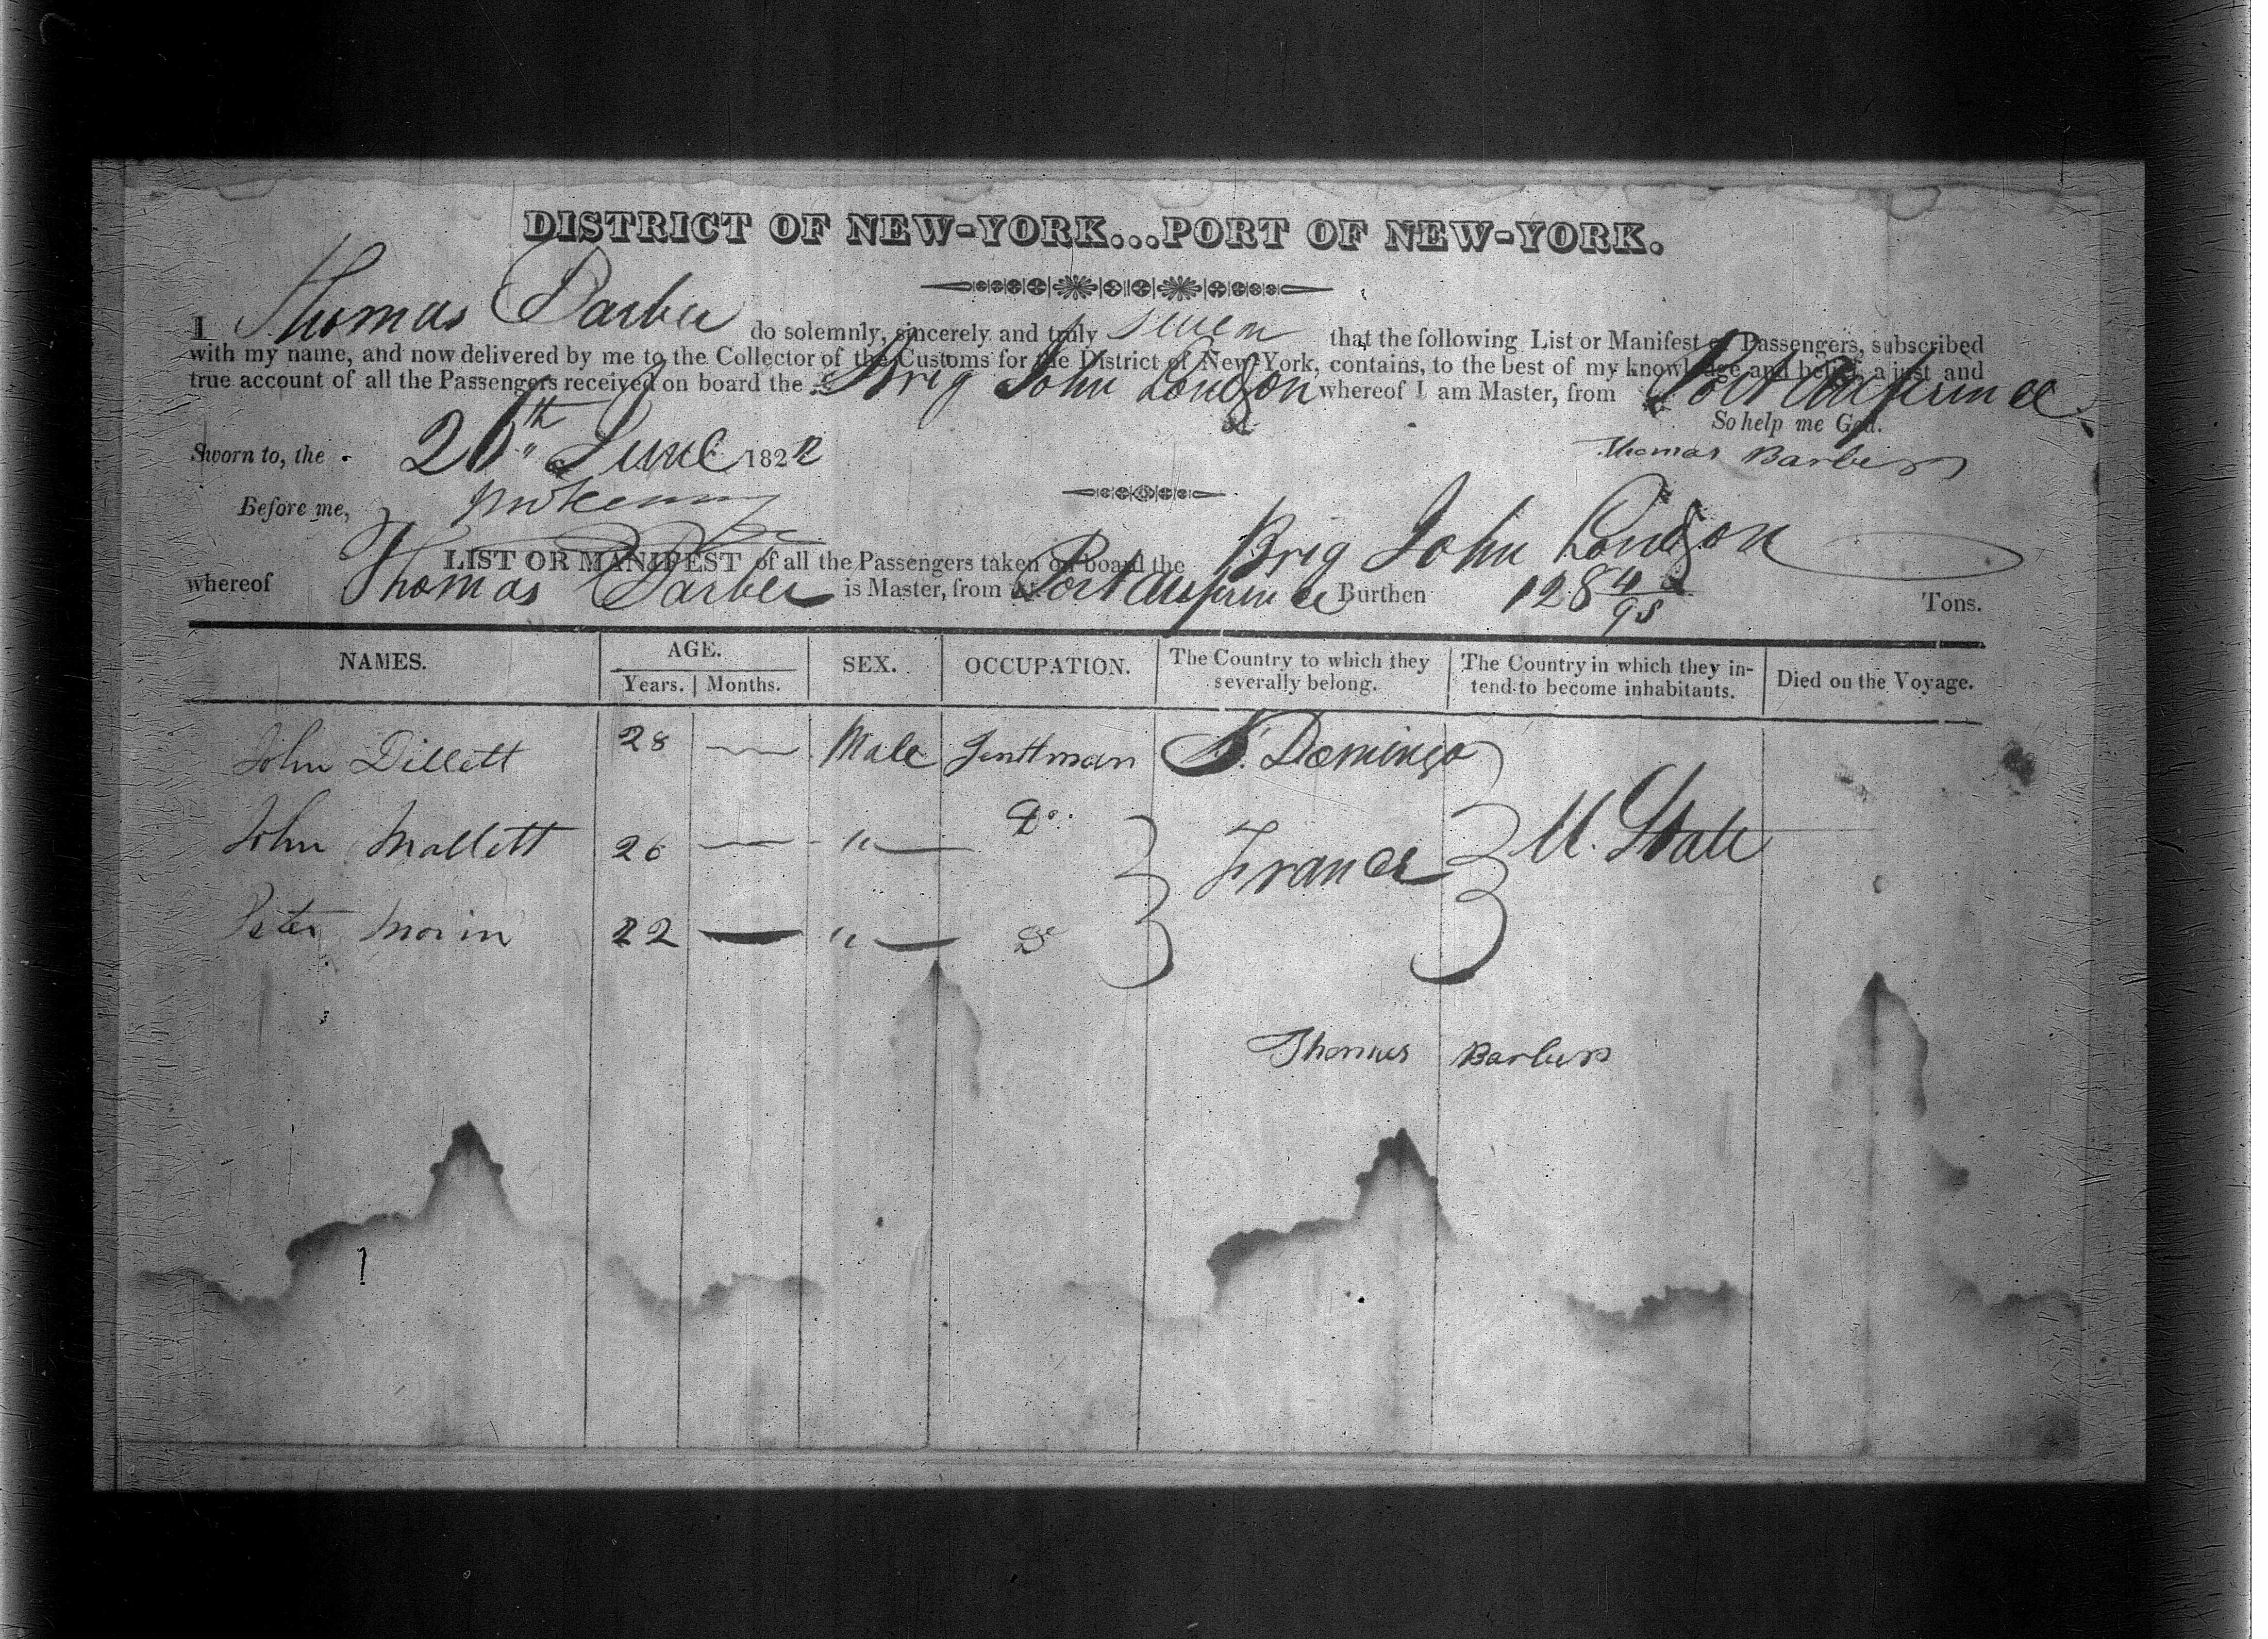 DISTRICT OF NEW-YORK...PORT OF NEW-YORK.
I Thomas Barber do solemnly, sincerely and truly swear that the following List or Manifest of Passengers, subscribed
with my name, and now delivered by me to the Collector of the Customs for the District of New-York, contains, to the best of my knowledge and belief, a just and
true account of all the Passengers received on board the Brig John London whereof I am Master, from Port au prince
So help me God.
Sworn to, the 26th June 1822
Thomas Barber
Before me,
LIST OR MANIFEST of all the Passengers taken on board the Brig John London
whereof Thomas Barber is Master, from Port au prince Burthen 128 4/95 Tons.
NAMES. AGE. SEX. OCCUPATION. The Country to which they severally belong. The Country in which they in-tend to become inhabitants. Died on the Voyage.
Years. Months.
John Dillett 28 — Male Gentlman St. Domingo
John Mallett 26 — " Do France U. State
Peter Morin 22 — " Do
Thomas Barber